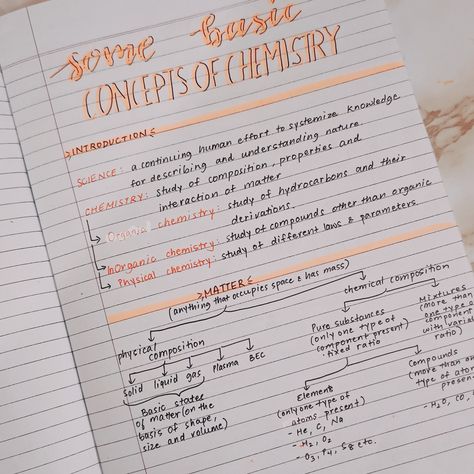 some basic
CONCEPTS OF CHEMISTRY
INTRODUCTION
SCIENCE: a continuing human effort to systemize knowledge
for describing and understanding nature.
CHEMISTRY: study of composition, properties and
interaction of matter
Organic chemistry: study of hydrocarbons and their
derivations.
InOrganic chemistry: study of compounds other than organic
Physical chemistry: study of different laws & parameters
MATTER
(anything that occupies space & has mass)
physical composition
solid liquid gas plasma BEC
Basic states
of matter (on the
basis of shape,
size and volume)
chemical composition
Pure substances
(only one type of
component present)
fixed ratio
Mixtures
(more than
one type of
component
with varia
ratio)
Element
(only one type of
atoms present)
- He, C, Na
- H2, O2
- O3, P4, S8 etc.
Compounds
(more than on
type of ato
presen
- H2O, CO,